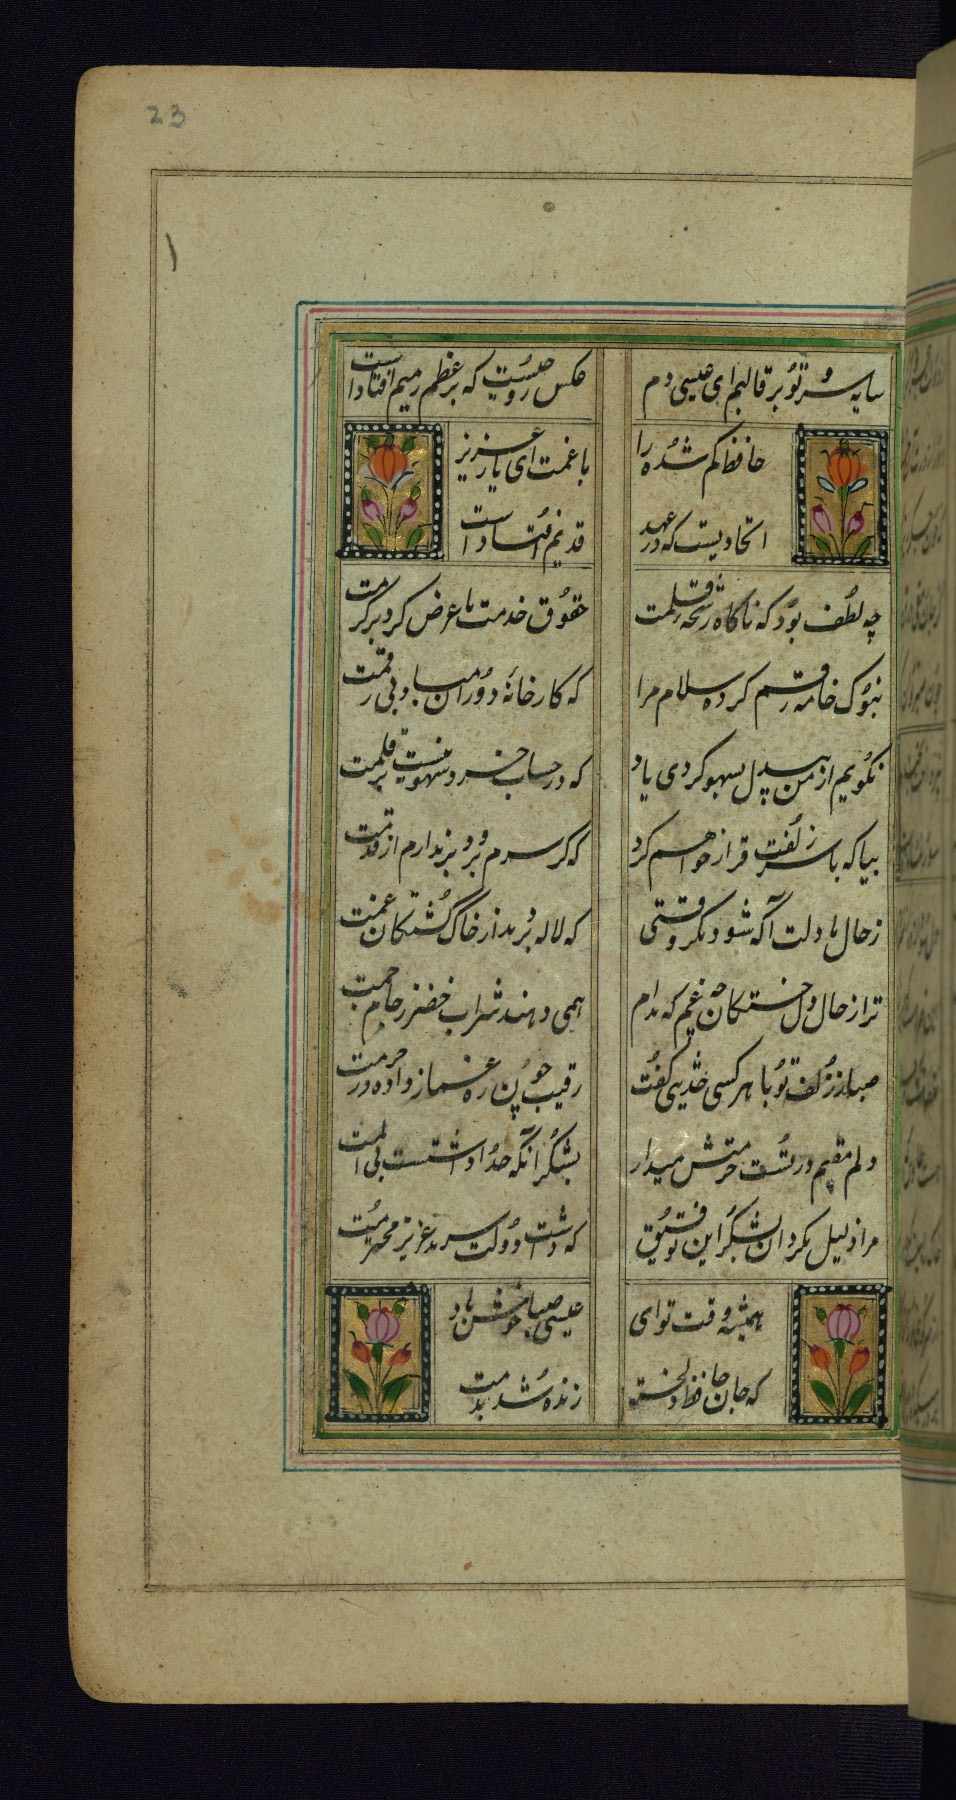 23
سایه سرو تو بر قالبم ای عیسی دم
عکس روحیست که بر عظم رمیم افتادست
حافظ گم شده را
با غمت ای یار عزیز
اتحادیست که در عهد
قدیم افتادست
چه لطف بود که ناگاه رشحه قلمت
حقوق خدمت ما عرض کرد بر کرمت
بنوک خامه رقم کرده سلام مرا
که کارخانه دوران مباد بی رقمت
نگویم از من بیدل بسهو کردی یاد
که در حساب خرد سهو نیست بر قلمت
بیا که با سر زلفت قرار خواهم کرد
که گر سرم برود بر ندارم از قدمت
ز حال ما دلت آگه شود مگر وقتی
که لاله بر دمد از خاک کشتگان غمت
ترا ز حال دل خستگان چه غم که مدام
همی دهند شراب خضر ز جام جمت
صبا ز زلف تو با هر کسی حدیثی گفت
رقیب چون ره غماز داده در حرمت
دلم مقیم در تست حرمتش میدار
بشکر آنکه خدا داشتست بی المت
مرا ذلیل مگردان بشکر این توفیق
که داشت دولت سرمد عزیز محترمت
همیشه وقت تو ای
عیسی صبا خوش باد
که جان حافظ دلخسته
زنده شد بدمت